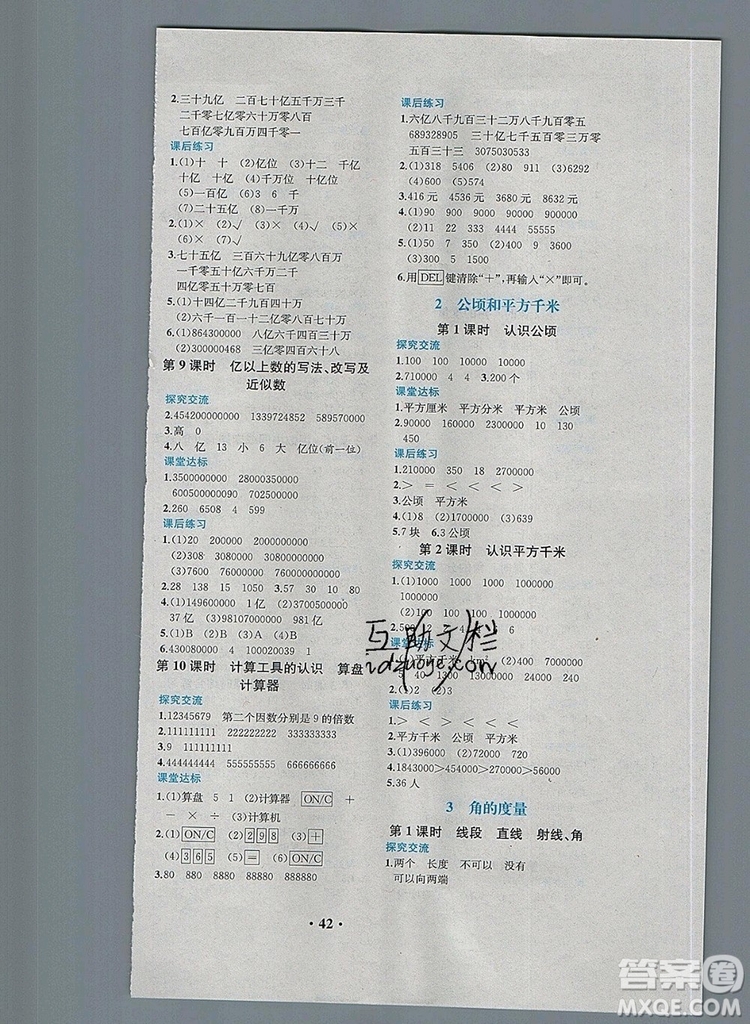 2.三十九亿　二百七十亿五千万三千
二千零七亿六十万零八百
七百亿零九百万四千零一
课后练习
1.(1)十　十　(2)亿位　(3)十二　千亿
十亿　十亿　(4)千万位　十亿位
(5)一百亿　(6)3　6　6
(7)二十五亿　(8)一千万
2.(1)×　(2)√　(3)×　(4)√　(5)×
(6)×　(7)√
3.七十五亿　三百六十九亿零八百万
一千零五十亿零二百八十万
五千零五十亿零七百
5.(1)十四亿二千九百四十万
(2)六千一百一十二亿零五百万
6.(1)864300000　八亿六千四百三十万
(2)3003400680　三十亿零三百四十万零六百八十
第 9 课时　亿以上数的写法、改写及
近似数
探究交流
2.454200000000　1339724852　589570000
3.高　0
4.八　亿　13　小　6　大　亿位(前一位)
课堂达标
1.3500000000　28000350000
600500000000　70502500000
2.260　6508　4　599
课后练习
1.(1)20　200000　2000000000
(2)308　3080000　30800000000
(3)7600　76000000　760000000000
2.28　138　15　1050　3.<　>　>　<
4.(1)149600000　1亿　(2)3680000000
37亿　(3)98107000000　981亿
5.(1)B　(2)B　(3)A　(4)B
6.430080000　4　100000
第 10 课时　计算工具的认识　算盘
计算器
探究交流
1.12345679　第二个因数分别是9的倍数
2.111111111　222222222　333333333
3.9　111111111
4.444444444　555555555　666666666
课堂达标
1.(1)算盘　5　1　(2)计算器　ON/C　+
-　×　÷　(3)计算机
2.(1)ON/C　(2)298　(3)+
(4)365　(5)=　(6)ON/C
3.80　880　8880　88880　888880
课后练习
1.六亿八千九百三十二万八千九百零五
689328905　三十亿七千五百零三万零
五百三十三　3075030533
2.(1)318　(2)80　911　(3)6292
(4)600　(5)574
3.416元　4536元　3680元　8632元
4.(1)90　900　9000　90000
(2)11　22　333　4444
5.(1)50　7　350　(2)9　400　3600
(3)500
6.用DEL键清除“+”,再输入“×”即可。
2　公顷和平方千米
第 1 课时　认识公顷
探究交流
1.100　100　10000　10000
2.710000　4　4　3.200个
课堂达标
1.平方厘米　平方分米　平方米　公顷
2.90000　160000　2300000　10　130
450
课后练习
1.210000　350　18　2700000
2.>　=　<　<　<　>
3.公顷　平方米
4.(1)8　(2)1700000　(3)639
5.7块　6.3公顷
第 2 课时　认识平方千米
探究交流
1.(1)1000　1000　1000　1000000
1000000
(2)100　100　100　1000000
2.5000000
课堂达标
40　1300　9000000
3.(1)2　(2)3
课后练习
1.>　<　>　<　<　<
2.平方千米　公顷　平方米
3.(1)396000　(2)72000　720
4.1843000>415000>396000>227000
5.36人
3　角的度量
第 1 课时　线段　直线　射线、角
探究交流
1.两个　长度　不可以　没有
可以向两端
• 42 •
互助文栏
答案圈
MXQE.COM